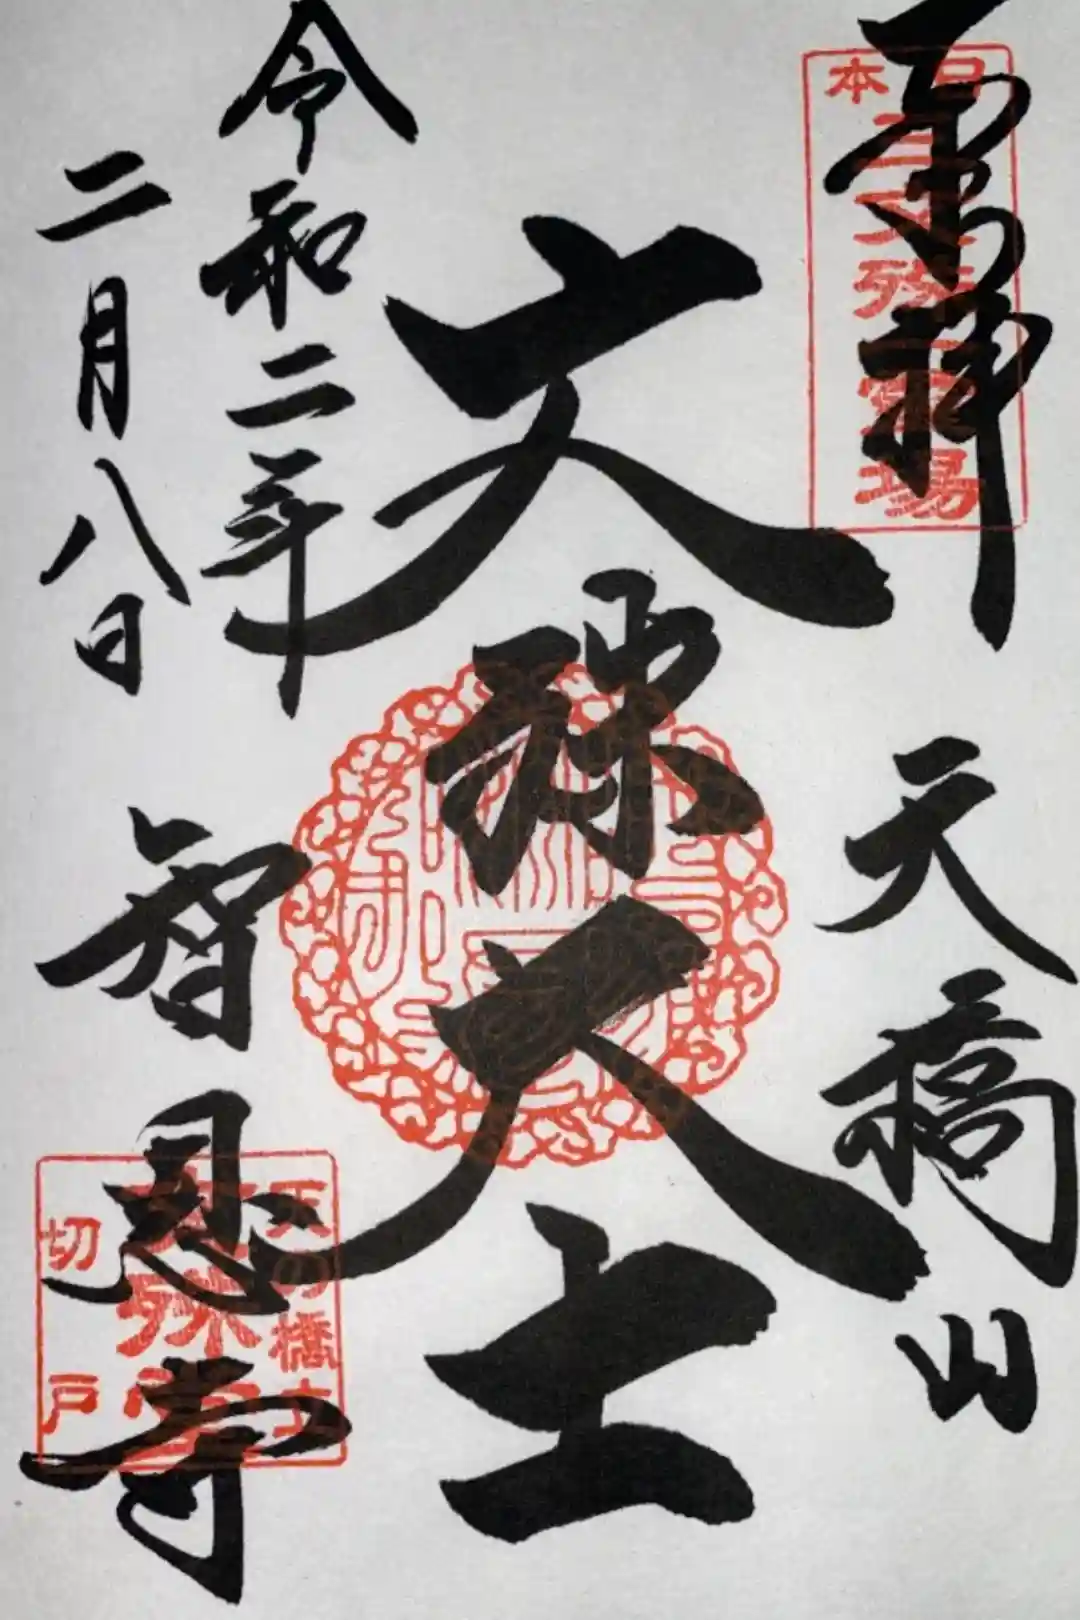 奉拝
日本
三文殊霊場
天橋山
文殊大士
令和二年
二月八日
智恩寺
天の橋立
文殊堂
切戸